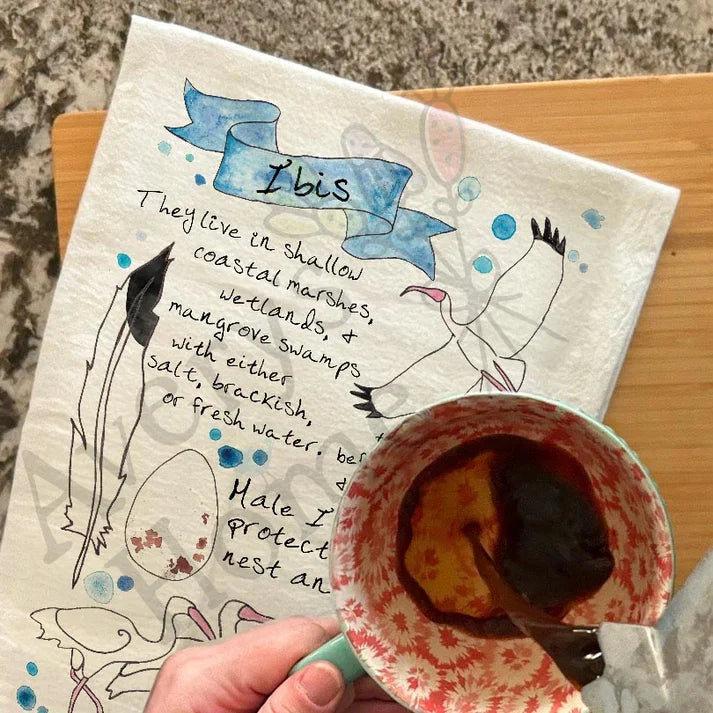 Ibis
They live in shallow
coastal marshes,
wetlands, &
mangrove swamps
with either
salt, brackish,
or fresh water.
Male I
protect
nest an
Avery
Home